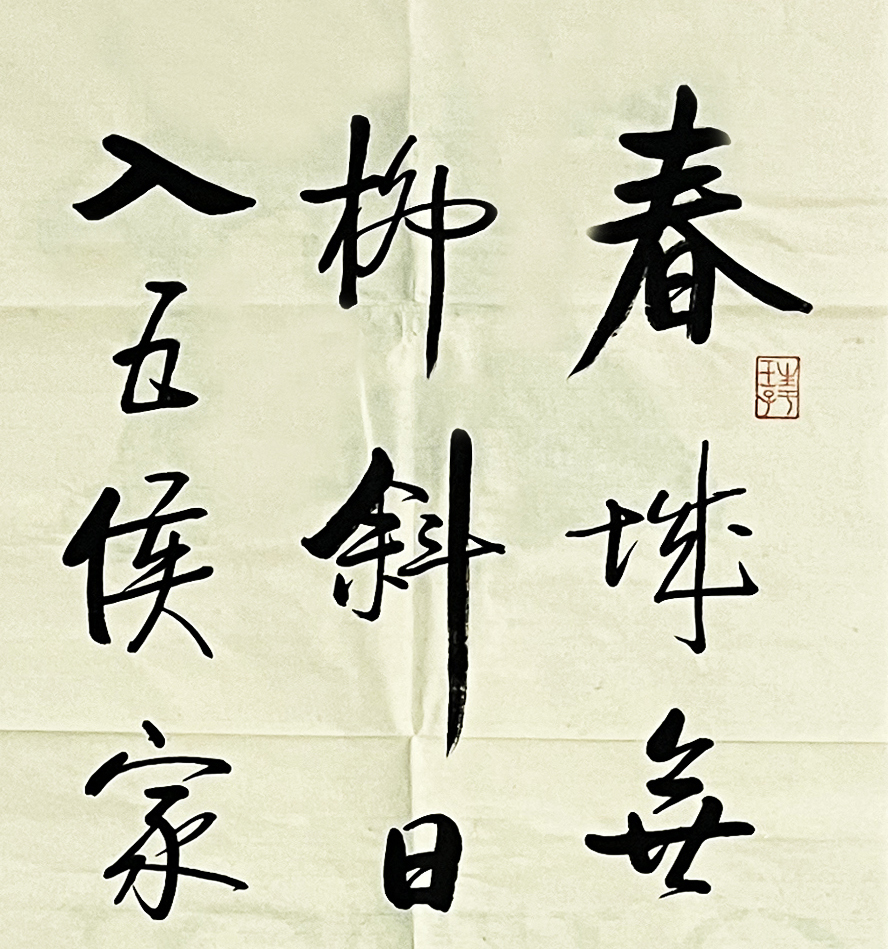 春城無
柳斜日
入五侯家